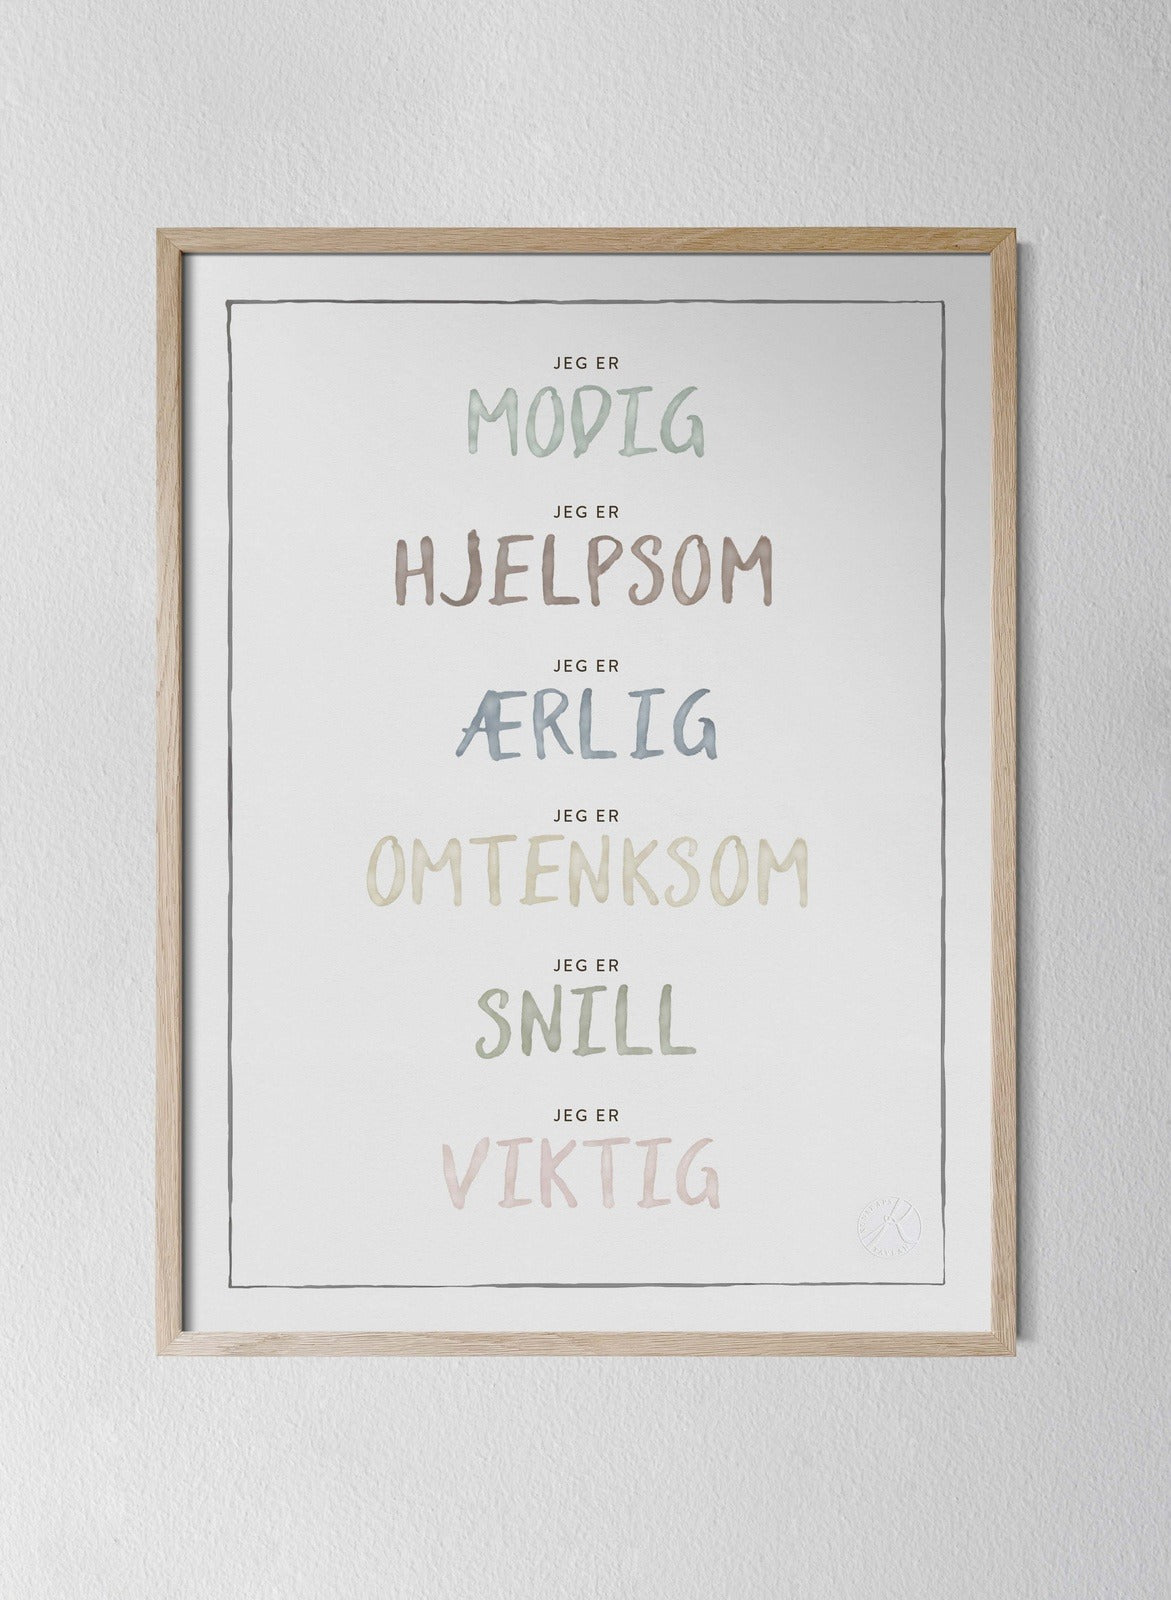 JEG ER
MODIG
JEG ER
HJELPSOM
JEG ER
ÆRLIG
JEG ER
OMTENKSOM
JEG ER
SNILL
JEG ER
VIKTIG